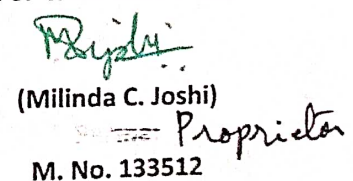 (Milinda C. Joshi)
Proprietor
M. No. 133512